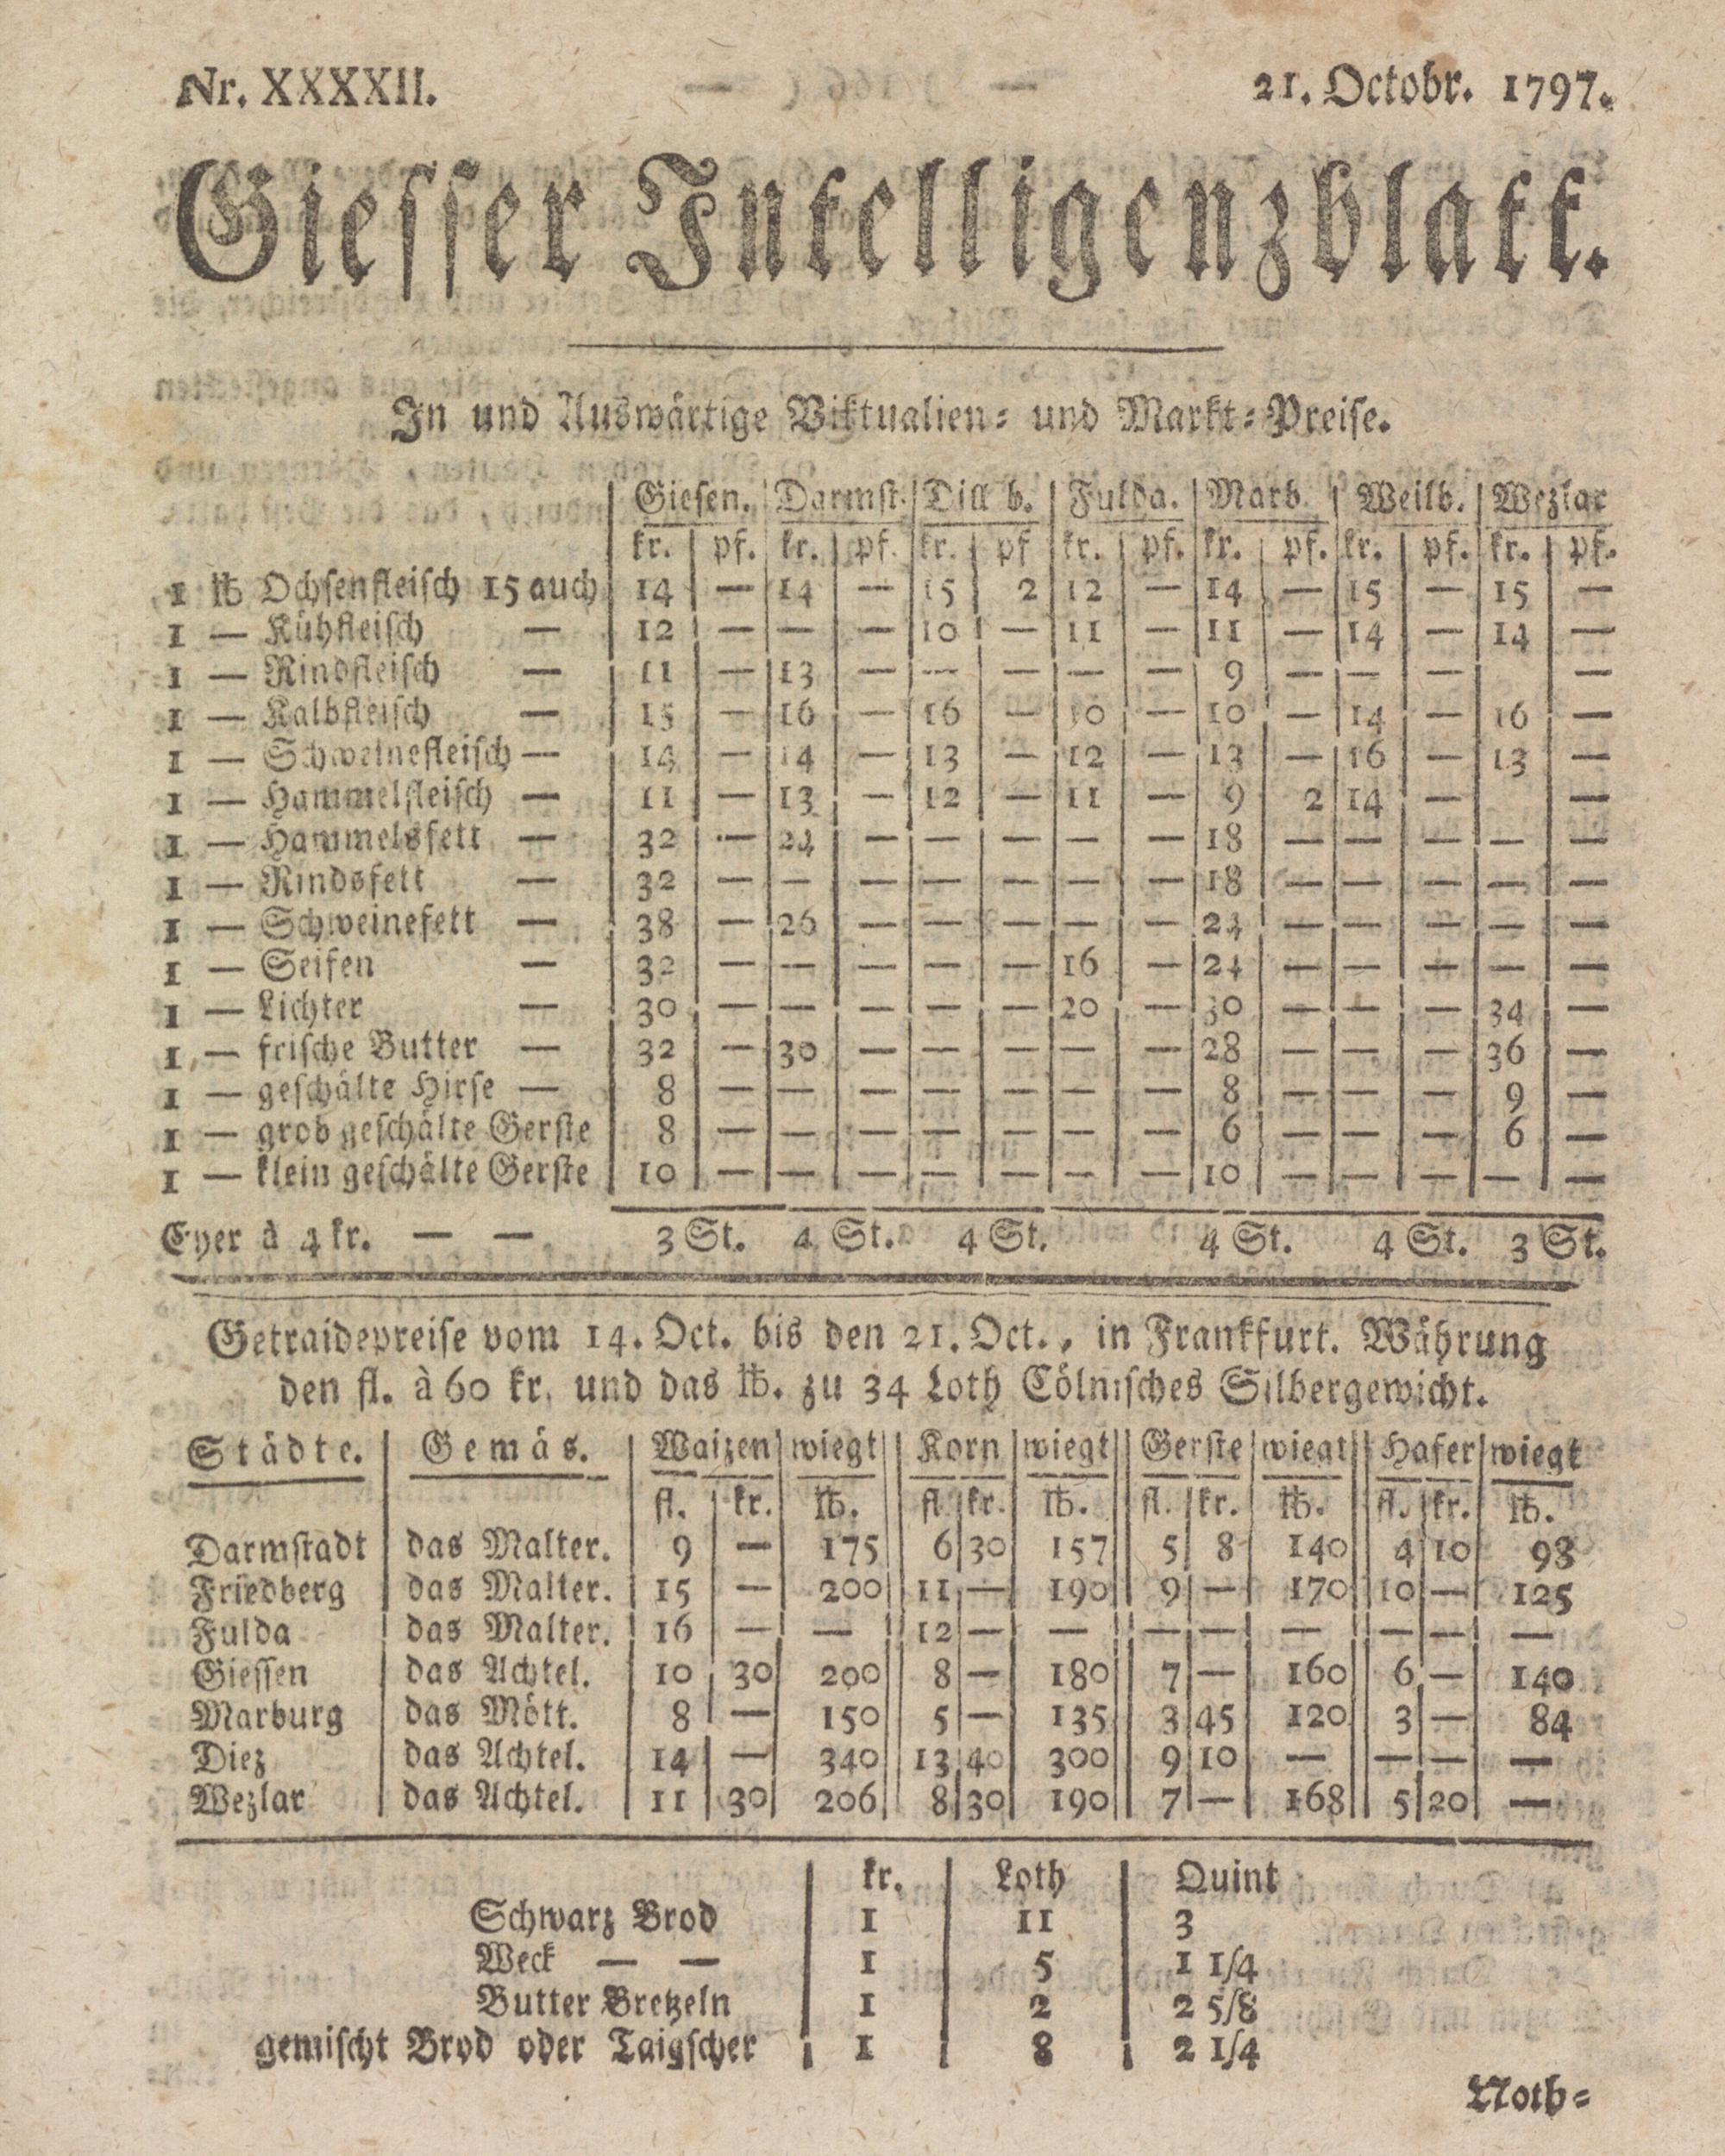 Nr. XXXXII. 21. Octobr. 1797.
Giesser Intelligenzblatt.
In und Auswärtige Viktualien- und Markt-Preise.
Giesen. Darmst. Dill b. Fulda. Marb. Weilb. Wezlar
kr. pf. kr. pf. kr. pf kr. pf. kr. pf. kr. pf. kr. pf.
1 ℔ Ochsenfleisch 15 auch 14 — 14 — 15 2 12 — 14 — 15 — 15 —
1 — Kühfleisch — 12 — — — 10 — 11 — 11 — 14 — 14 —
1 — Rindfleisch — 11 — 13 — — — — — 9 — — — —
1 — Kalbfleisch — 15 — 16 — 16 — 10 — 10 — 14 — 16 —
1 — Schweinefleisch — 14 — 14 — 13 — 12 — 13 — 16 — 13 —
1 — Hammelfleisch — 11 — 13 — 12 — 11 — 9 2 14 — —
1 — Hammelsfett — 32 — 24 — — — — — 18 — — — — —
1 — Rindsfett — 32 — — — — — — — 18 — — — — —
1 — Schweinefett — 38 — 26 — — — — — 24 — — — — —
1 — Seifen — 32 — — — — — 16 — 24 — — — — —
1 — Lichter — 30 — — — — — 20 — 30 — — — 34 —
1 — frische Butter — 32 — 30 — — — — — 28 — — — 36 —
1 — geschälte Hirse — 8 — — — — — — — 8 — — — 9 —
1 — grob geschälte Gerste 8 — — — — — — — 6 — — — 6 —
1 — klein geschälte Gerste 10 — — — — — — — 10 — — — — —
Eyer à 4 kr. — — 3 St. 4 St. 4 St. 4 St. 4 St. 3 St.
Getraidepreise vom 14. Oct. bis den 21. Oct., in Frankfurt. Währung
den fl. à 60 kr. und das ℔. zu 34 Loth Cölnisches Silbergewicht.
Städte. Gemäs. Waizen wiegt Korn wiegt Gerste wiegt Hafer wiegt
fl. kr. ℔. fl kr. ℔. fl. kr. ℔. fl. kr. ℔.
Darmstadt das Malter. 9 — 175 6 30 157 5 8 140 4 10 98
Friedberg das Malter. 15 — 200 11 — 190 9 — 170 10 — 125
Fulda das Malter. 16 — — 12 — — — — — — — —
Giessen das Achtel. 10 30 200 8 — 180 7 — 160 6 — 140
Marburg das Mött. 8 — 150 5 — 135 3 45 120 3 — 84
Diez das Achtel. 14 — 340 13 40 300 9 10 — — — —
Wezlar das Achtel. 11 30 206 8 30 190 7 — 168 5 20 —
kr. Loth Quint
Schwarz Brod 1 11 3
Weck — — 1 5 1 1/4
Butter Bretzeln 1 2 2 5/8
gemischt Brod oder Taigscher 1 8 2 1/4
Noth-